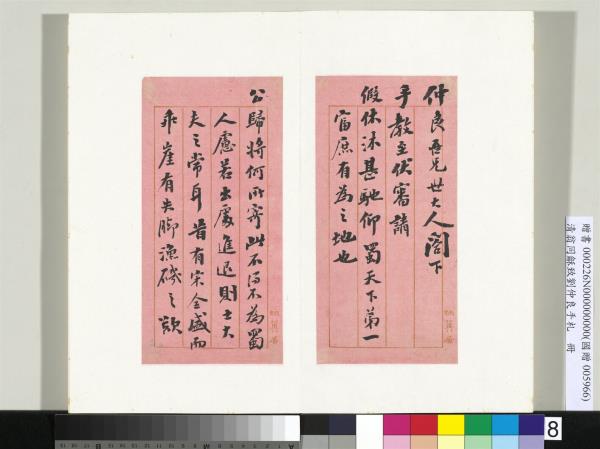 仲良吾兄世大人閣下
手教至伏審請
假休沐甚馳仰蜀天下第一
富庶有為之地也
公歸將何所寄此不得不為蜀
人慮若出處進退則士大
夫之常耳昔有宋全盛而
乖崖有失腳漁磯之歎
贈書 000226N000000000(國贈 005966)
清翁同龢致劉仲良手札 冊
8